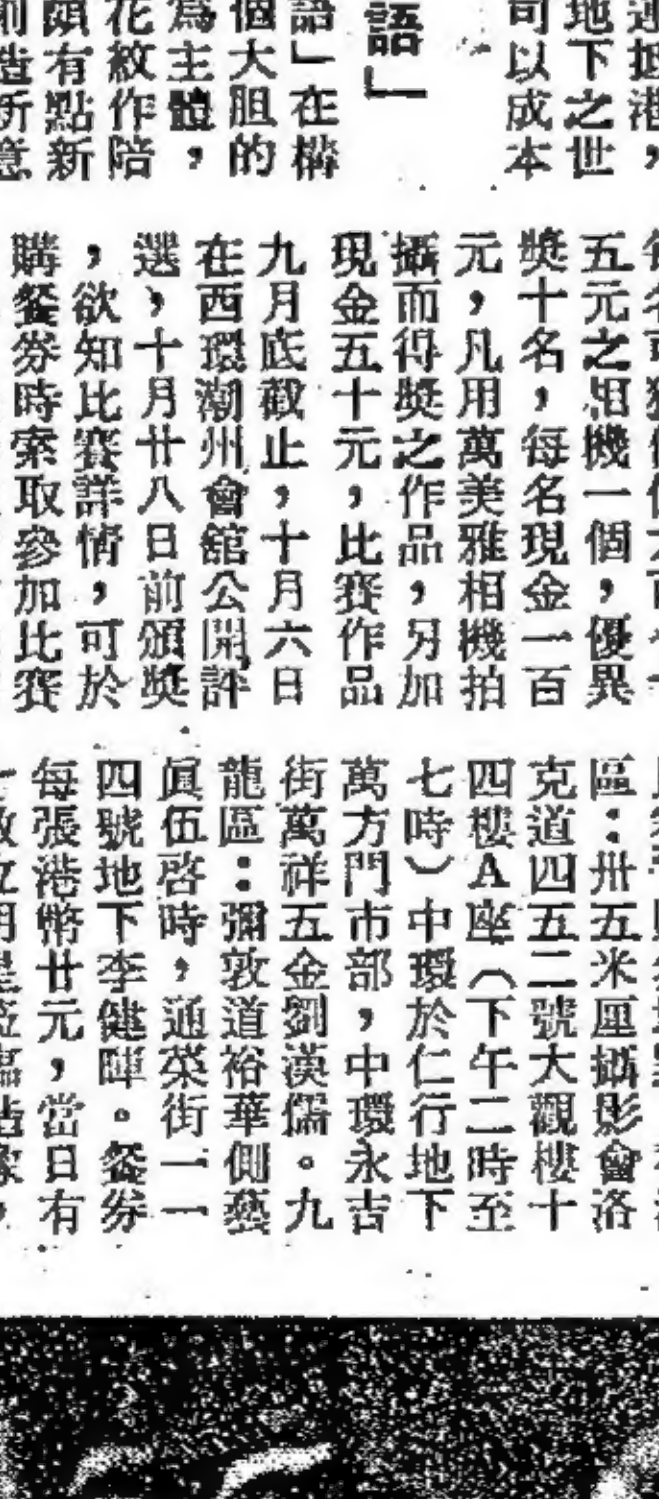 運抵港，
地下之世
司以成本
語」
語」在構
個大胆的
為主體，
花紋作陪
頗有點新
創造新意
五元之相機一個，優異
獎十名，每名現金一百
元，凡用萬美雅相機拍
攝而得獎之作品，另加
現金五十元，比賽作品
九月底截止，十月六日
在西環潮州會舘公開評
選，十月廿八日前頒獎
，欲知比賽詳情，可於
購餐券時索取參加比賽
區：卅五米厘攝影會洛
克道四五二號大觀樓十
四樓A座（下午二時至
七時）中環於仁行地下
萬方門市部，中環永吉
街萬祥五金劉漢儒。九
龍區：彌敦道裕華側藝
眞伍啓時，通菜街一一
四號地下李健暉。餐券
每張港幣廿元，當日有